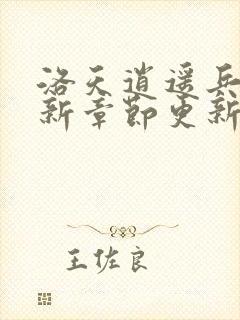 洛天逍遥兵
新章节更新
王佐良